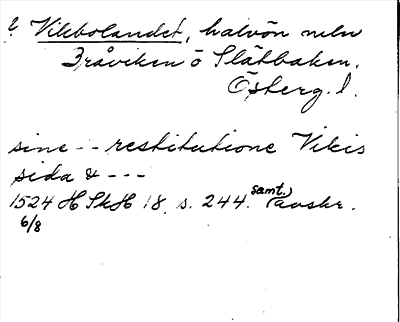 ? Vikbolandet, halvön mln
Bråviken o Slätbaken,
Österg. l.
sine - - restitutione Vikis
sida & - - -
1524 HSkH 18, s. 244. samt.) avskr.
6/8